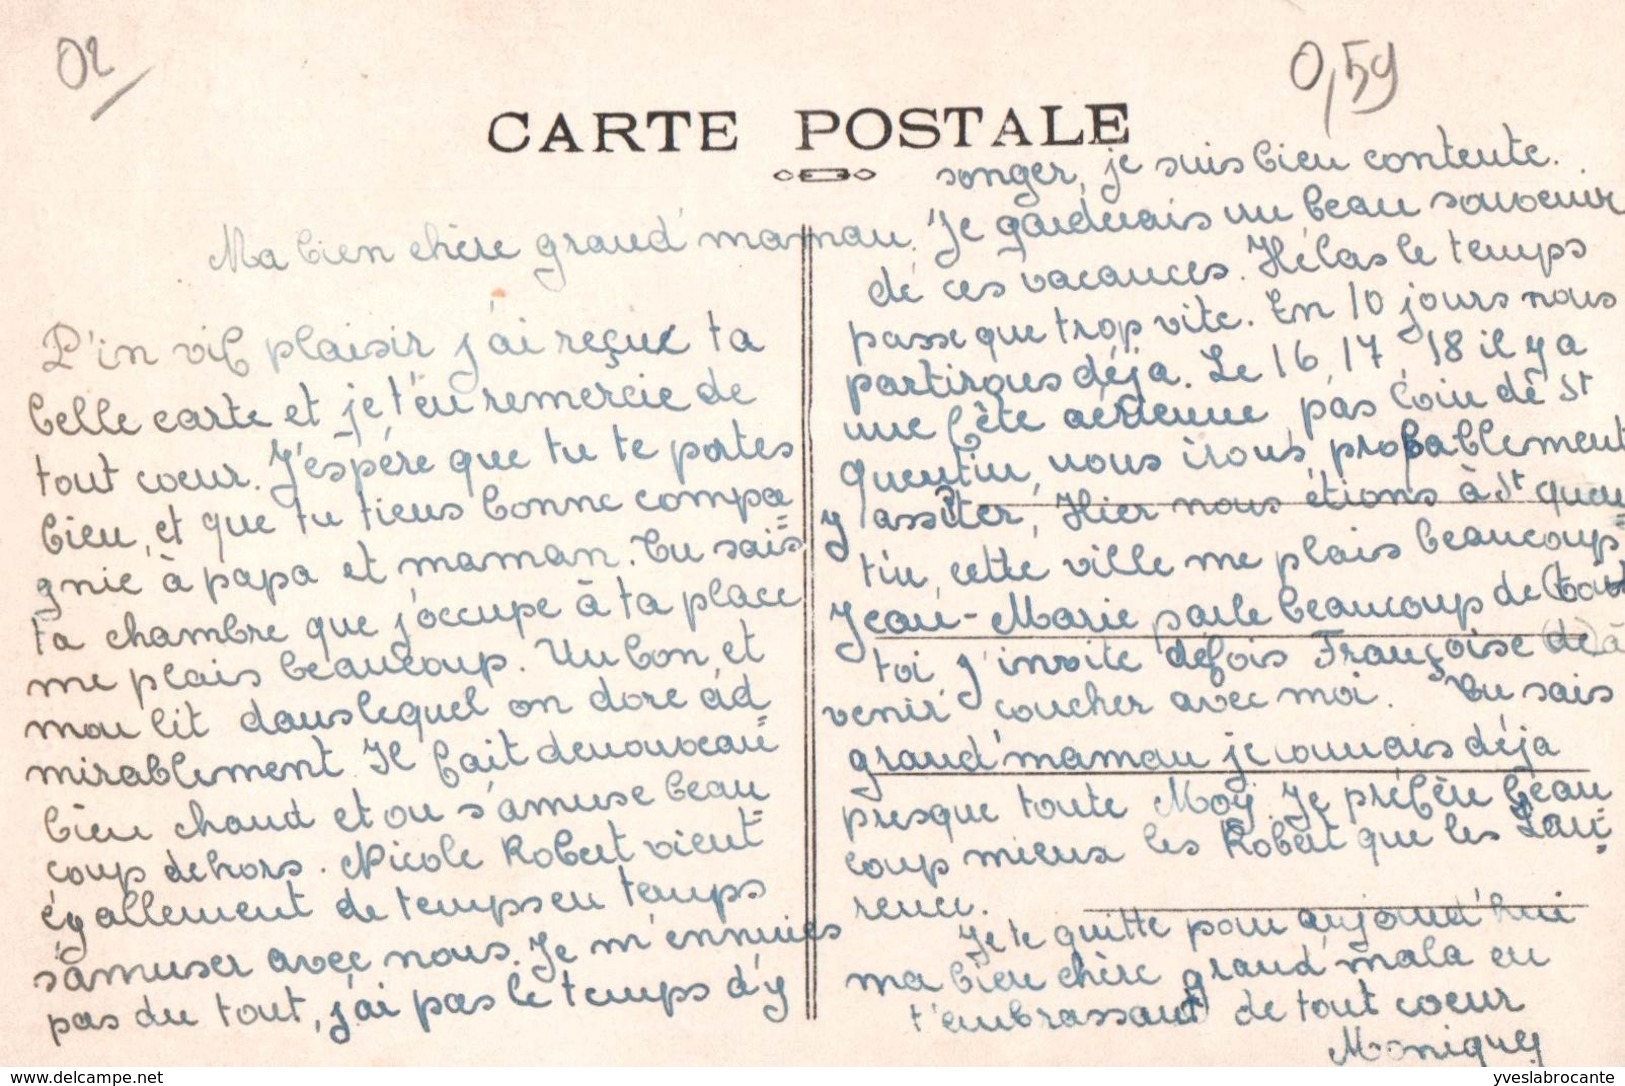 02
0,59
CARTE POSTALE
Ma bien chère grand'maman.
D'in vif plaisir j'ai reçue ta
belle carte et je t'en remercie de
tout coeur. J'espère que tu te portes
bien, et que tu tiens bonne compa=
gnie à papa et maman. Tu sais
ta chambre que j'occupe à ta place
me plais beaucoup. Un bon et
mou lit dans lequel on dore ad=
mirablement. Il fait denouveau
bien chaud et on s'amuse beau=
coup dehors. Nicole Robert vient
égallement de temps en temps
s'amuser avec nous. Je m'ennuies
pas du tout, j'ai pas le temps d'y
songer, je suis bien contente.
Je garderais un beau souvenir
de ces vacances. Hélas le temps
passe que trop vite. En 10 jours nous
partirons déja. Le 16, 17, 18 il y a
une fête aérienne pas loin de St
Quentin, nous irons probablement
y assiter, Hier nous étions à St Quen=
tin, cette ville me plais beaucoup
Jean-Marie parle beaucoup de (tout
toi j'invite défois Françoise (de) à
venir coucher avec moi. Tu sais
grand'maman je connais déja
presque toute Moy. Je préfèr beau
coup mieux les Robert que les Lau=
renc.
Je te quitte pour aujourd'hui
ma bien chère grand'mala en
t'embrassant de tout coeur
Monique
www.delcampe.net
yveslabrocante